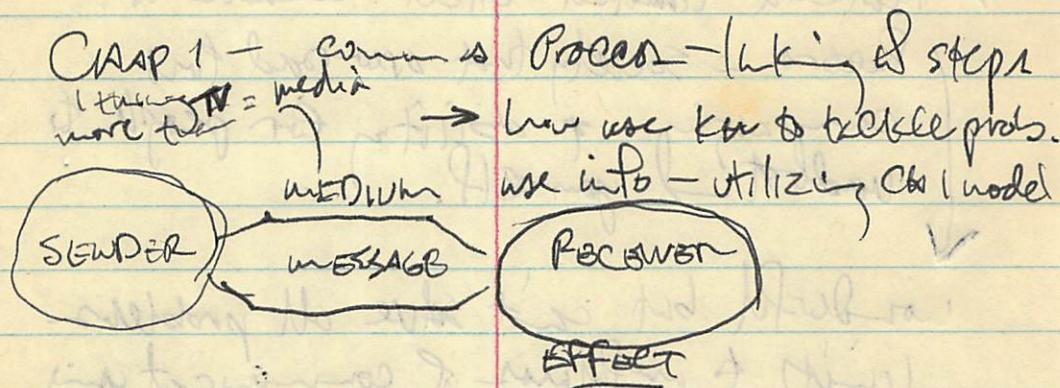 CHAP 1 — comm is Process - linking of steps
1 thing TV = media
more than
→ how use know to tackle probs.
MEDIUM use info - utilizing Ch 1 model
SENDER MESSAGE RECEIVER
EFFECT